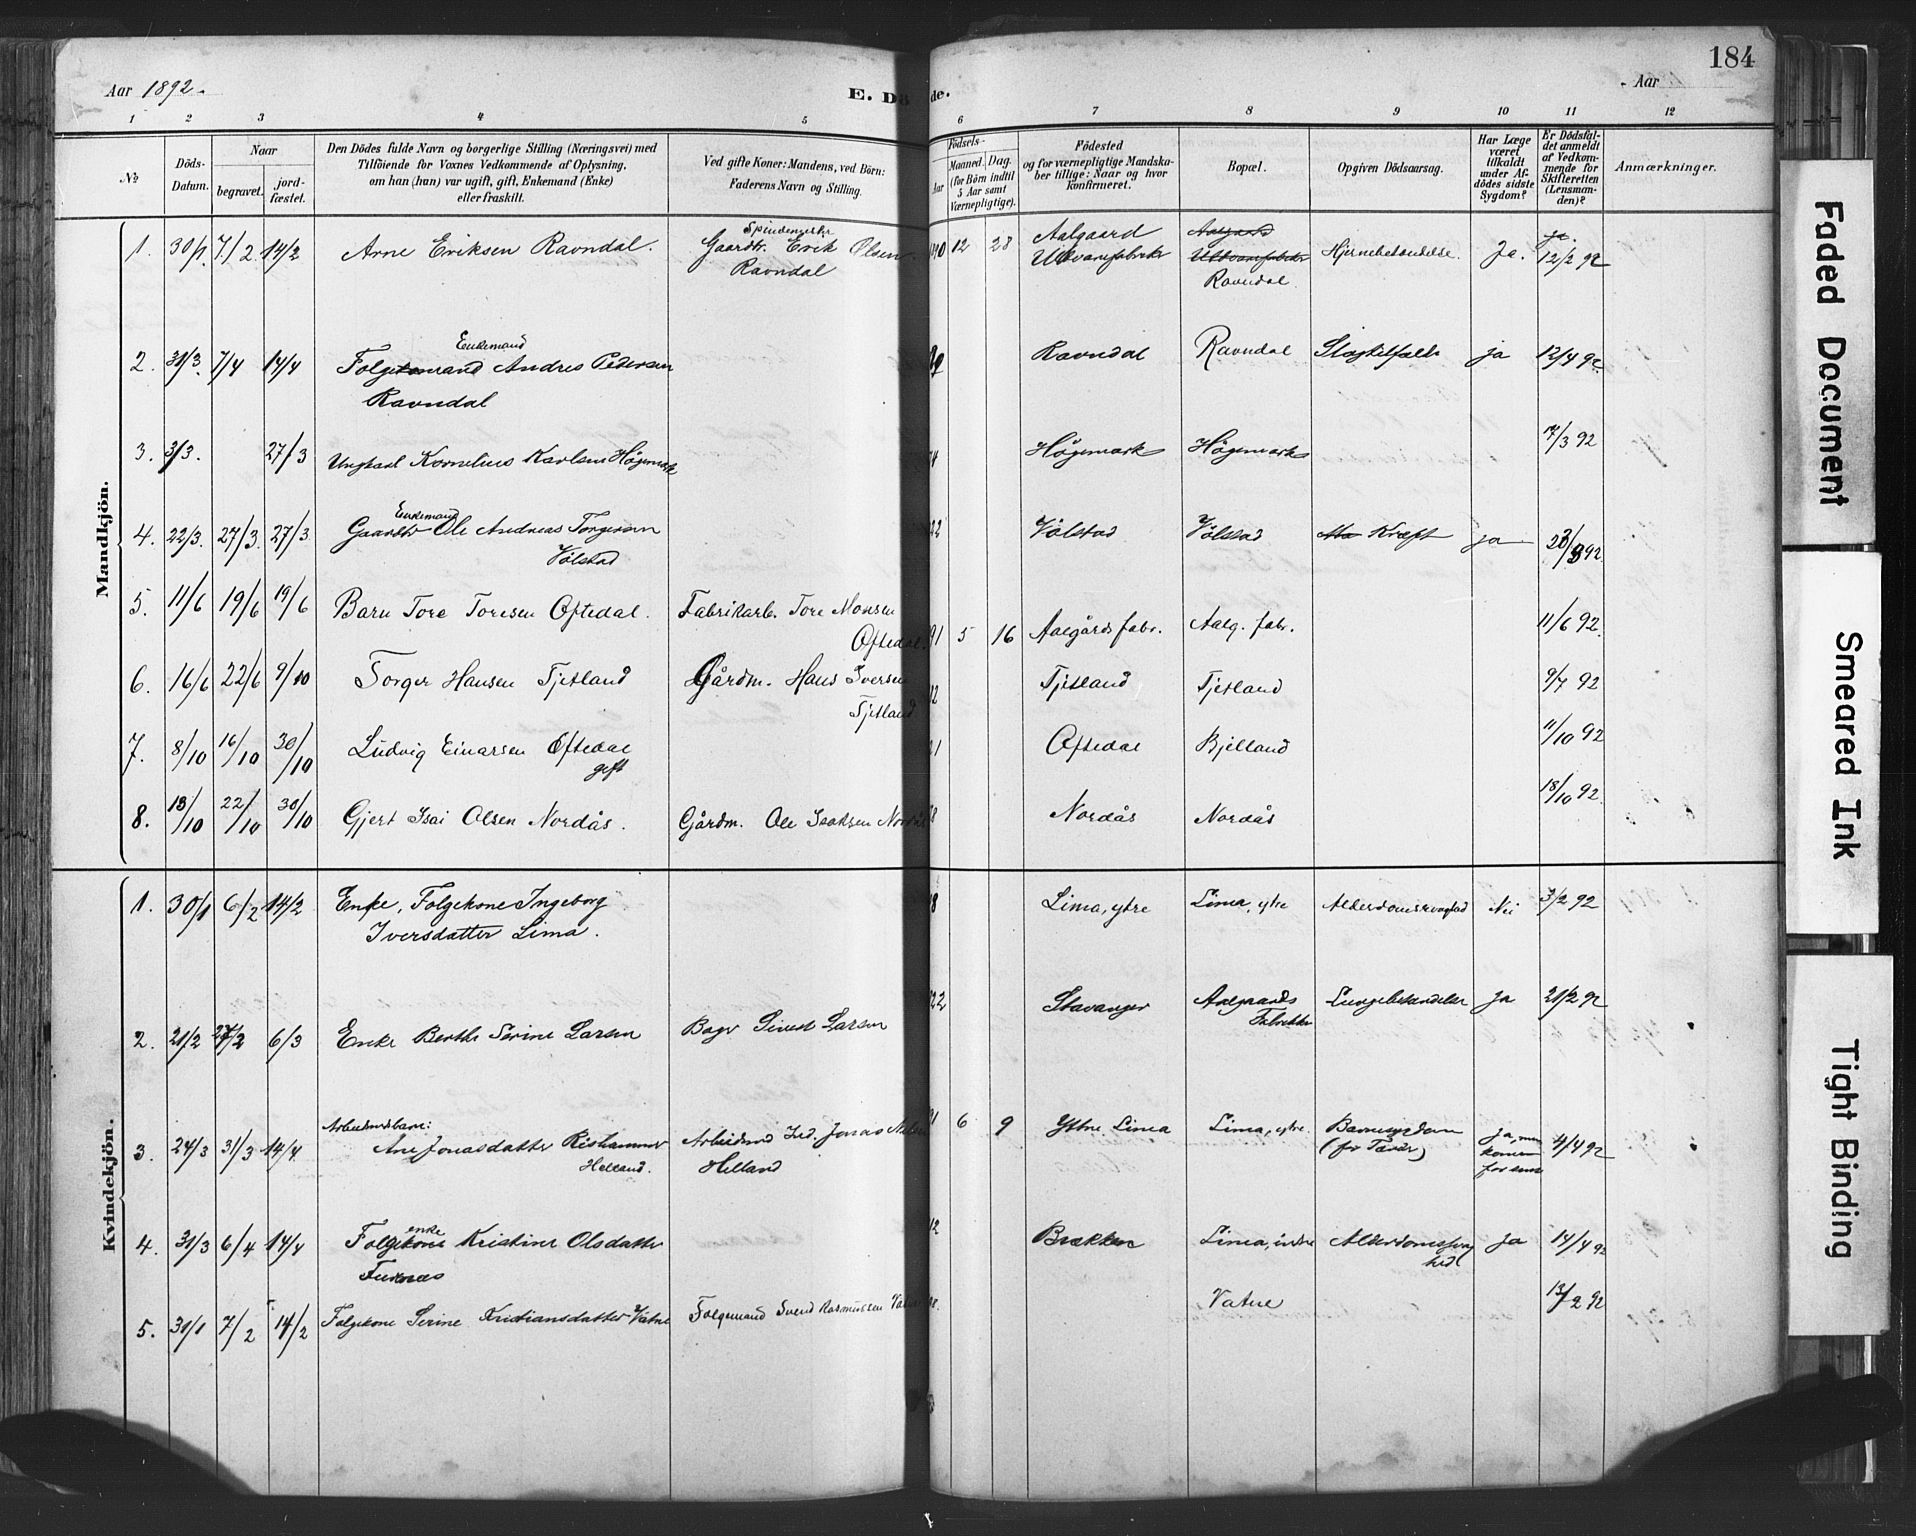 184
Aar 1892.
E. Dö
de.
Aar
1 2 3 4 5 6 7 8 9 10 11 12
№
Döds-Datum.
Naar
begravet.
jord-fæstet.
Den Dödes fulde Navn og borgerlige Stilling (Næringsvei) med
Tilföiende for Voxnes Vedkommende af Oplysning,
om han (hun) var ugift, gift, Enkemand (Enke)
eller fraskilt.
Ved gifte Koner: Mandens, ved Börn:
Faderens Navn og Stilling.
Födsels-
Aar
Maaned.
Dag.
(for Börn indtil
5 Aar samt
Værnepligtige).
Födested
og for værnepligtige Mandska-
ber tillige: Naar og hvor
konfirmeret.
Bopæl.
Opgiven Dödsaarsag.
Har Læge
været
tilkaldt
under Af-
dödes sidste
Sygdom?
Er Dödsfal-
det anmeldt
af Vedkom-
mende for
Skifteretten
(Lensman-
den)?
Anmærkninger.
Mandkjön.
1. 30/1. 7/2 14/2 Arne Eriksen Ravndal. Spindemester Gaardbr. Erik Olsen Ravndal 90 12 28 Aalgaard Uldvarefabrik Aalgaards Uldvarefabrik Ravndal Hjernebetændelse. Ja. ja 12/2 92
2. 31/3. 7/4 14/4 Enkemand Folgemand Andres Pedersen Ravndal Ravndal Ravndal Slagtilfælde ja 12/4 92.
3. 3/3. 27/3 Ungkarl Kornelius Karlsen Høgemark Høgemark Høgemark 17/3 92
4. 22/3. 27/3. 27/3 Enkemand Gaardbr Ole Andreas Torgersen Vølstad 22 Vølstad Vølstad Kræft ja 23/3 92
5. 11/6 19/6 19/6 Barn Tore Toresen Oftedal. Fabrikarb. Tore Monsen Oftedal. 91 5 16 Aalgårds fabr. Aalg. fabr. 11/6 92.
6. 16/6 22/6 9/10 Torger Hansen Tjetland Gårdm. Hans Iversen Tjetland 2 Tjetland Tjetland 9/7 92
7. 8/10 16/10 30/10 Ludvig Einarsen Oftedal gift 21 Oftedal Bjelland 11/10 92
8. 13/10 22/10 30/10 Gjert Isai Olsen Nordås. Gårdm. Ole Isaksen Nordås 8 Nordås Nordås 18/10 92.
Kvindekjön.
1. 30/1 6/2 14/2 Enke, Folgekone Ingeborg Iversdatter Lima. 8 Lima, ytre Lima, ytre Alderdomssvaghed Nei 3/2 92
2. 21/2 27/2 6/3 Enke Berthe Serine Larsen Bager Sivert Larsen 22 Stavanger Aalgaards Fabrikker Lungebetændelse Ja 21/2 92
3. 24/3 31/3 14/4 Arbeidsmdsbarn: Ane Jonasdatter Rishammer Helland. Arbeidsmd Ind. Jonas Helland 91 6 9 Yttre Lima Lima, ytre Barnesygdom (for Tænder) Ja, men kom for sent 4/4 92
4. 31/3 6/4 14/4 enke Folgekone Kristine Olsdatter Furenæs 12 Brækken Lima, indre Alderdomssvaghed Ja 14/4 92
5. 31/1 7/2 14/2 Folgekone Serine Kristiansdatter Vatne Folgemand Svend Rasmussen Vatne 8. Vatne 13/2 92
Faded Document
Smeared Ink
Tight Binding